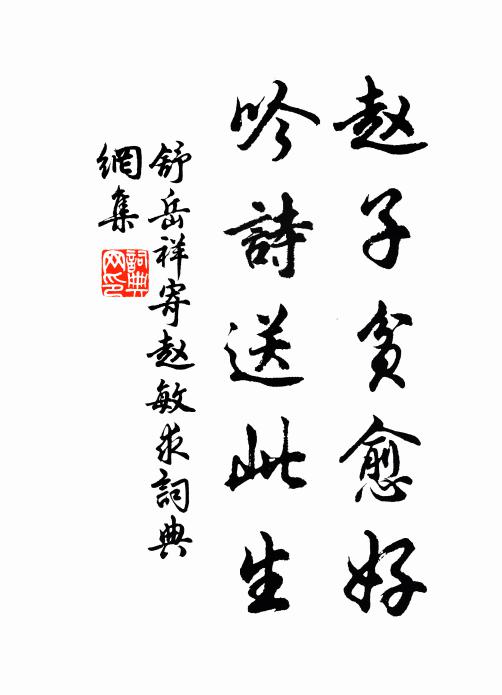 赵子贫愈好
吟詩送此生
舒岳祥寄赵敏求詞典
網集
詞典网印